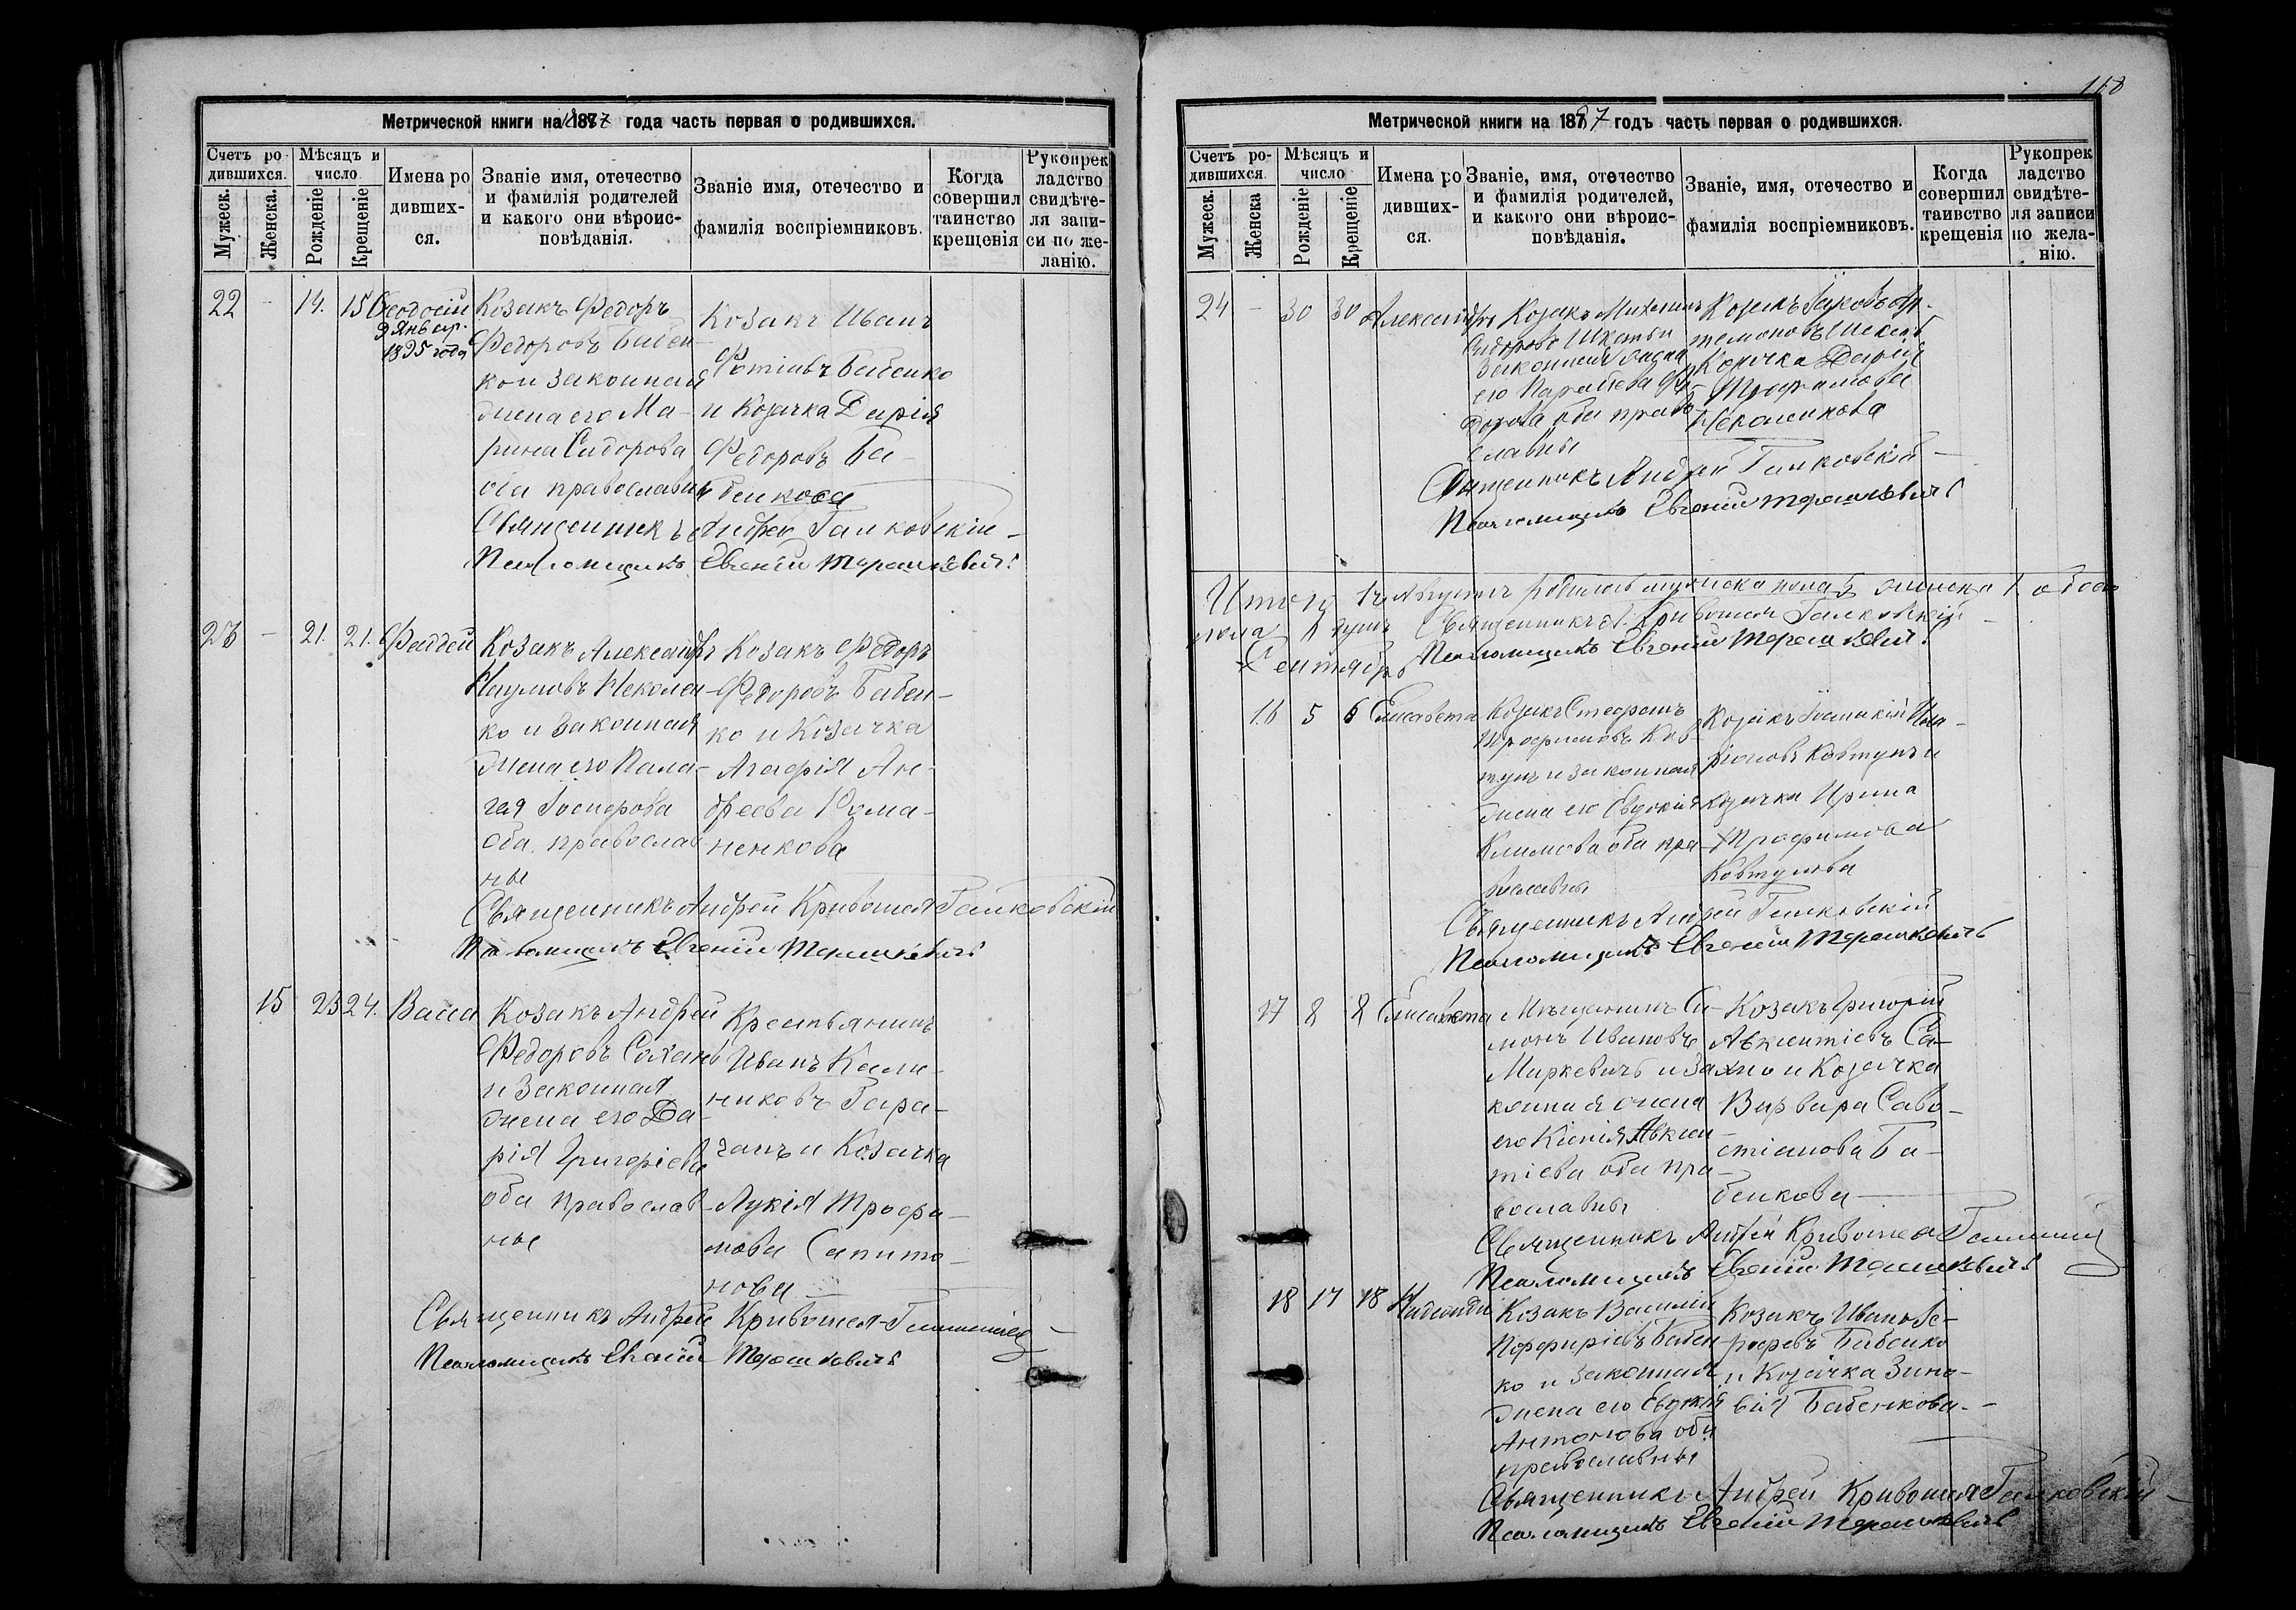 Метрической книги на 1887 года часть первая о родившихся.
Счетъ ро-
дившихся.
Мужеск.
Женска.
Мѣсяцъ и
число
Рожденіе
Крещеніе
Имена ро
дивших-
ся.
Званіе имя, отечество
и фамилія родителей
и какого они вѣроис-
повѣданія.
Званіе имя, отечество и
фамилія воспріемниковъ.
Когда
совершил
таинство
крещенія
Рукопрек
ладство
свидѣте-
ля запи-
си по же-
ланію.
22 - 14. 15 Ѳеодосій
9 Январ.
1895 года
Козакъ Федоръ
Федоровъ Бабен-
ко и законная
жена его Ма-
рина Сидорова
оба православны
Козакъ Иванъ
Фотіевъ Бабенко
и Козачка Дарія
Федоровъ Ба-
бенкова
Священникъ Андрей Галковскій -
Псаломщикъ Евгеній Терешкевичъ
23 - 21. 21. Фаддей
Козакъ Александръ
Наумовъ
ко и законная
жена его Пала-
гея Іосифова
оба православ
ны
Козакъ Федоръ
Федоровъ Бабен-
ко и Козачка
Агафія Ан-
дреева Рома-
ненкова
Священникъ Андрей Кривошея Галковскій
Псаломщикъ Евгеній Терешкевичъ
15 23 24. Васса
Козакъ Андрей
Федоровъ Сахань
и законная
жена его Да-
рія Григоріева
оба православ-
ны
Крестьянинъ
Иванъ Кали-
никовъ Гара-
ганъ и Козачка
Лукія Трофи-
мова Сапито-
нова
Священникъ Андрей Кривошея-Галковскій
Псаломщикъ Евгеній Терешкевичъ
168
Метрической книги на 1887 годъ часть первая о родившихся.
Счетъ ро-
дившихся.
Мужеск.
Женска
Мѣсяцъ и
число
Рожденіе
Крещеніе
Имена ро
дивших-
ся.
Званіе, имя, отечество
и фамилія родителей,
и какого они вѣроис-
повѣданія.
Званіе, имя, отечество и
фамилія воспріемниковъ.
Когда
совершил
таивство
крещенія
Рукопрек
ладство
свидѣте-
ля записи
по жела-
нію.
24 - 30 30 Александръ
Козакъ Михаилъ
Сидоровъ
Законная жена
его Параскева Фе-
дорова оба право-
славны
Козакъ Іаковъ Ар-
темоновъ
Козачка Дарія
Трофимова
Священникъ Андрей Галковскій -
Псаломщикъ Евгеній Терешкевичъ
Итого въ Августѣ родилось мужска пола 5 женска 1 обоего
пола душъ Священникъ А. Кривошея Галковскій -
Сентябрь Псаломщикъ Евгеній Терешкевичъ
16 5 6 Елисавета
Козакъ Стефанъ
Трофимовъ Ков-
тунъ и законная
жена его Евдокія
Климова оба пра-
вославны
Козакъ Іоаникій Ила-
ріоновъ Ковтунъ и
Козачка Ирина
Трофимова
Ковтунова
Священникъ Андрей Галковскій
Псаломщикъ Евгеній Терешкевичъ
17 8 8 Елисавета
Мѣщанинъ Си-
монъ Ивановъ
Миркевичъ и за
конная жена
его Ксенія Авксен-
тіева оба пра-
вославны
Козакъ Григорій
Авксентіевъ Са-
хно и Козачка
Варвара Сава-
стіанова Ба-
бенкова
Священникъ Андрей Кривошея Галковскій
Псаломщикъ Евгеній Терешкевичъ
18 17 18 Надежда
Козакъ Василій
Порфиріевъ Бабен-
ко и законная
жена его Евдокія
Антонова оба
православны
Козакъ Иванъ Іо-
сифовъ Бабенко
и Козачка Зино-
вія Бабенкова. -
Священникъ Андрей Кривошея Галковскій -
Псаломщикъ Евгеній Терешкевичъ